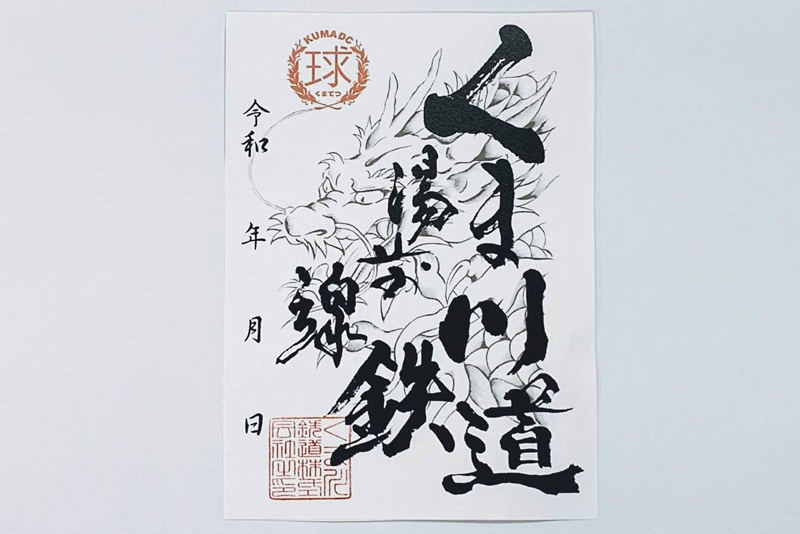 KUMA DC
球
くまてつ
くま川
鉄道
湯前
線
令和 年 月 日
くま川
鉄道株式
会社之印